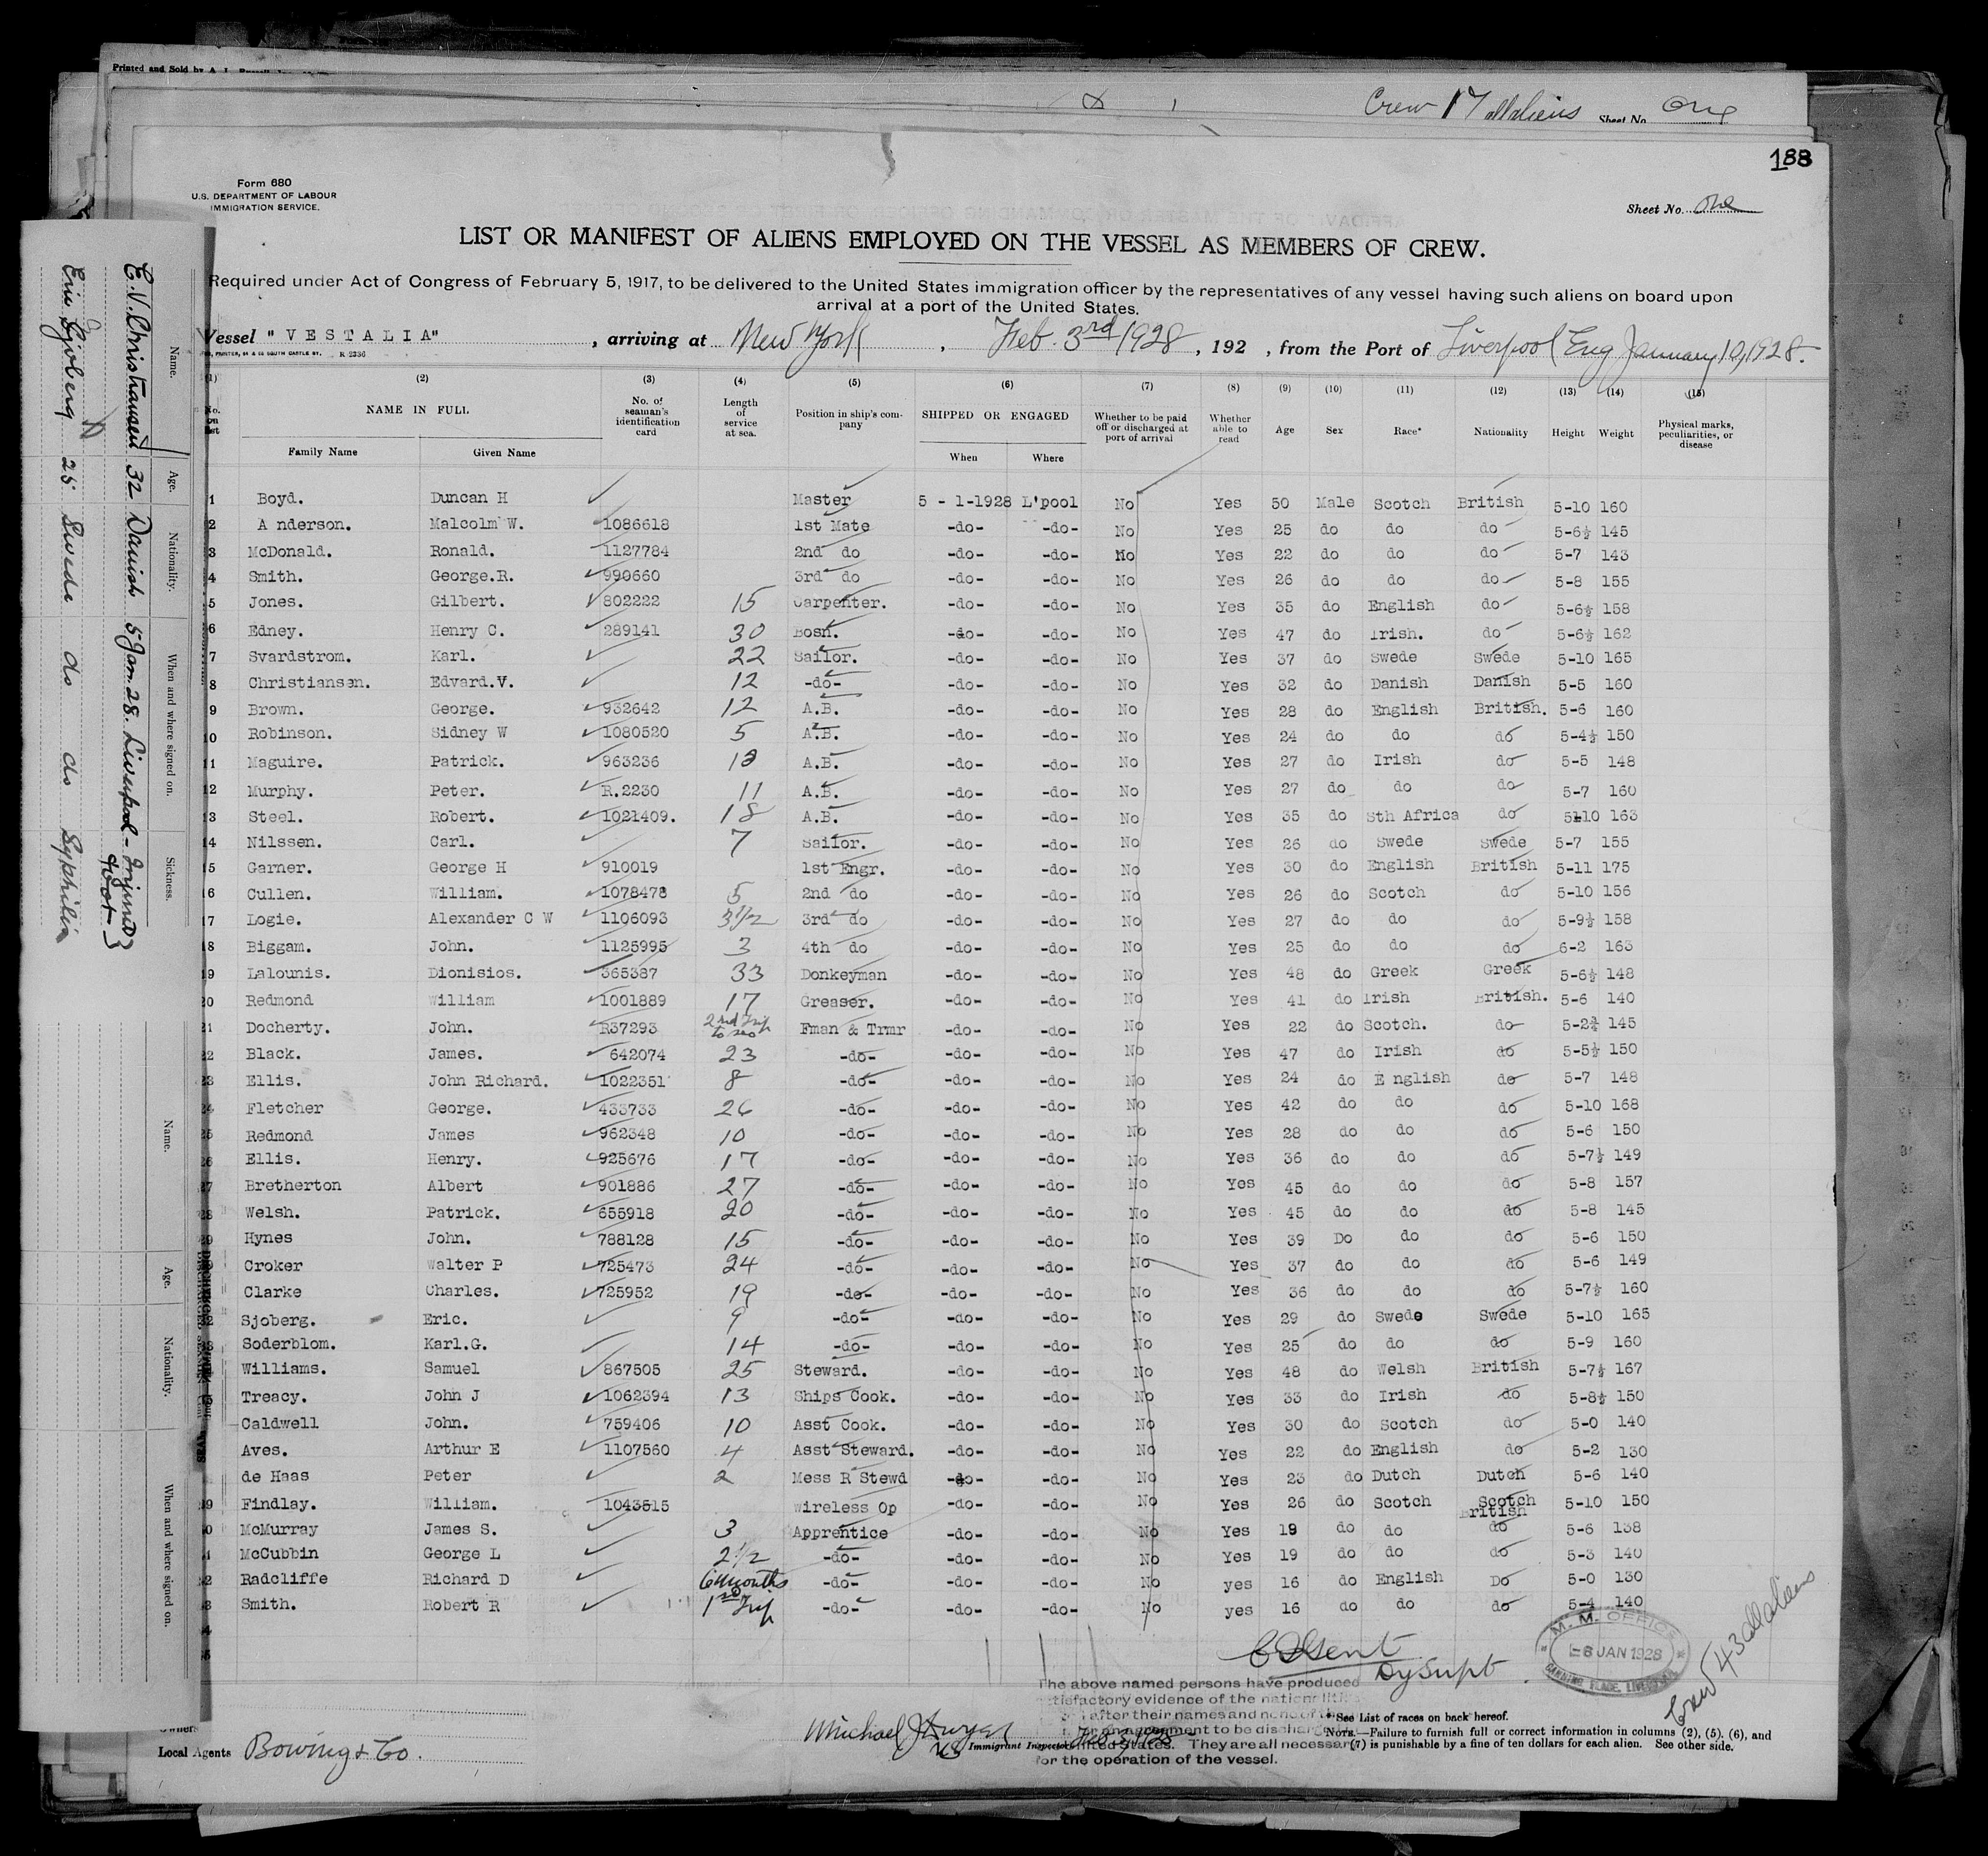 Printed and Sold by A. L.
Crew 17 all aliens Sheet No. One
188
Form 680
U.S. DEPARTMENT OF LABOUR
IMMIGRATION SERVICE.
Sheet No. One
LIST OR MANIFEST OF ALIENS EMPLOYED ON THE VESSEL AS MEMBERS OF CREW.
Required under Act of Congress of February 5, 1917, to be delivered to the United States immigration officer by the representatives of any vessel having such aliens on board upon
arrival at a port of the United States.
Vessel "VESTALIA", arriving at New York, Feb. 3rd 1928, 192 , from the Port of Liverpool Eng January 10, 1928.
PRINTER, SOUTH CASTLE ST. R 2336
(1) (2) (3) (4) (5) (6) (7) (8) (9) (10) (11) (12) (13) (14) (15)
No. on list NAME IN FULL No. of seaman's identification card Length of service at sea. Position in ship's company SHIPPED OR ENGAGED Whether to be paid off or discharged at port of arrival Whether able to read Age Sex Race* Nationality Height Weight Physical marks, peculiarities, or disease
Family Name Given Name When Where
1 Boyd. Duncan H Master 5 - 1-1928 L'pool No Yes 50 Male Scotch British 5-10 160
2 A nderson. Malcolm W. 1086618 1st Mate -do- -do- No Yes 25 do do do 5-6½ 145
3 McDonald. Ronald. 1127784 2nd do -do- -do- No Yes 22 do do do 5-7 143
4 Smith. George.R. 990660 3rd do -do- -do- No Yes 26 do do do 5-8 155
5 Jones. Gilbert. 802222 15 Carpenter. -do- -do- No Yes 35 do English do 5-6½ 158
6 Edney. Henry C. 289141 30 Bosn. -do- -do- No Yes 47 do Irish. do 5-6½ 162
7 Svardstrom. Karl. 22 Sailor. -do- -do- No Yes 37 do Swede Swede 5-10 165
8 Christiansen. Edvard.V. 12 -do- -do- -do- No Yes 32 do Danish Danish 5-5 160
9 Brown. George. 932642 12 A.B. -do- -do- No Yes 28 do English British. 5-6 160
10 Robinson. Sidney W 1080520 5 A.B. -do- -do- No Yes 24 do do do 5-4½ 150
11 Maguire. Patrick. 963236 A.B. -do- -do- No Yes 27 do Irish do 5-5 148
12 Murphy. Peter. R.2230 11 A.B. -do- -do- No Yes 27 do do do 5-7 160
13 Steel. Robert. 1021409. 18 A.B. -do- -do- No Yes 35 do Sth Africa do 5-10 163
14 Nilssen. Carl. 7 Sailor. -do- -do- No Yes 26 do Swede Swede 5-7 155
15 Garner. George H 910019 1st Engr. -do- -do- No Yes 30 do English British 5-11 175
16 Cullen. William. 1078478 5 2nd do -do- -do- No Yes 26 do Scotch do 5-10 156
17 Logie. Alexander C W 1106093 3½ 3rd do -do- -do- No Yes 27 do do do 5-9½ 158
18 Biggam. John. 1125995 3 4th do -do- -do- No Yes 25 do do do 6-2 163
19 Lalounis. Dionisios. 365387 33 Donkeyman -do- -do- No Yes 48 do Greek Greek 5-6½ 148
20 Redmond William 1001889 17 Greaser. -do- -do- No Yes 41 do Irish British. 5-6 140
21 Docherty. John. R37293 2nd Trip to sea Fman & Trmr -do- -do- No Yes 22 do Scotch. do 5-2¾ 145
22 Black. James. 642074 23 -do- -do- -do- No Yes 47 do Irish do 5-5½ 150
23 Ellis. John Richard. 1022351 8 -do- -do- -do- No Yes 24 do E nglish do 5-7 148
24 Fletcher George. 433733 26 -do- -do- -do- No Yes 42 do do do 5-10 168
25 Redmond James 962348 10 -do- -do- -do- No Yes 28 do do do 5-6 150
26 Ellis. Henry. 925676 17 -do- -do- -do- No Yes 36 do do do 5-7½ 149
27 Bretherton Albert 901886 27 -do- -do- -do- No Yes 45 do do do 5-8 157
28 Welsh. Patrick. 655918 20 -do- -do- -do- No Yes 45 do do do 5-8 145
29 Hynes John. 788128 15 -do- -do- -do- No Yes 39 Do do do 5-6 150
Croker Walter P 725473 24 -do- -do- -do- No Yes 37 do do do 5-6 149
Clarke Charles. 725952 19 -do- -do- -do- No Yes 36 do do do 5-7½ 160
Sjoberg. Eric. 9 -do- -do- -do- No Yes 29 do Swede Swede 5-10 165
Soderblom. Karl.G. 14 -do- -do- -do- No Yes 25 do do do 5-9 160
Williams. Samuel 867505 25 Steward. -do- -do- No Yes 48 do Welsh British 5-7½ 167
Treacy. John J 1062394 13 Ships Cook. -do- -do- No Yes 33 do Irish do 5-8½ 150
Caldwell John. 759406 10 Asst Cook. -do- -do- No Yes 30 do Scotch do 5-0 140
Aves. Arthur E 1107560 4 Asst Steward. -do- -do- No Yes 22 do English do 5-2 130
de Haas Peter 2 Mess R Stewd -do- -do- No Yes 23 do Dutch Dutch 5-6 140
39 Findlay. William. 1043515 Wireless Op -do- -do- No Yes 26 do Scotch Scotch British 5-10 150
McMurray James S. 3 Apprentice -do- -do- No Yes 19 do do do 5-6 138
McCubbin George L 2½ -do- -do- -do- No Yes 19 do do do 5-3 140
Radcliffe Richard D 6 months -do- -do- -do- No yes 16 do English Do 5-0 130
Smith. Robert R 1st Trip -do- -do- -do- No yes 16 do do do 5-4 140
Dy Supt.
M. M. OFFICE
-6 JAN 1928
CANNING PLACE, LIVERPOOL
Crew 43 all aliens
The above named persons have produced
satisfactory evidence of the nationalities
after their names and none of
agreement to be discharged
United States. They are all necessary
for the operation of the vessel.
*See List of races on back hereof.
NOTE.—Failure to furnish full or correct information in columns (2), (5), (6), and
(7) is punishable by a fine of ten dollars for each alien. See other side.
Michael J Dwyer
US Immigrant Inspector Feb 3, 1928
Owners
Local Agents Bowring & Co.
Name. Age. Nationality. When and where signed on. Sickness.
E.V. Christiansen 32 Danish 5 Jan. 28. Liverpool - Injured foot
Eric Sjoberg 25 Swede do do Syphilis
Name. Age. Nationality. When and where signed on.